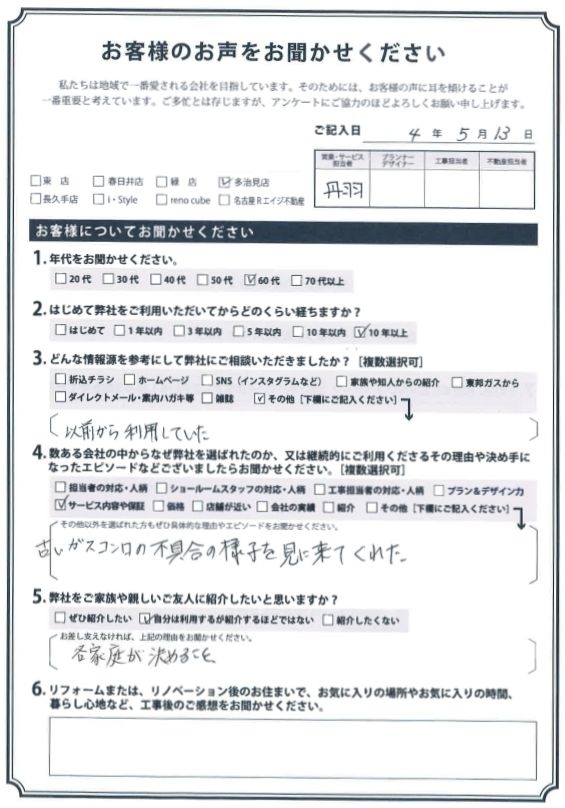 お客様のお声をお聞かせください
私たちは地域で一番愛される会社を目指しています。そのためには、お客様の声に耳を傾けることが
一番重要と考えています。ご多忙とは存じますが、アンケートにご協力のほどよろしくお願い申し上げます。
ご記入日 4 年 5 月 13 日
営業・サービス担当者 プランナーデザイナー 工事担当者 不動産担当者
丹羽
□東 店 □春日井店 □緑 店 ☑多治見店
□長久手店 □i・Style □reno cube □名古屋Rエイジ不動産
お客様についてお聞かせください
1. 年代をお聞かせください。
□20代 □30代 □40代 □50代 ☑60代 □70代以上
2. はじめて弊社をご利用いただいてからどのくらい経ちますか？
□はじめて □1年以内 □3年以内 □5年以内 □10年以内 ☑10年以上
3. どんな情報源を参考にして弊社にご相談いただきましたか？［複数選択可］
□折込チラシ □ホームページ □SNS（インスタグラムなど） □家族や知人からの紹介 □東邦ガスから
□ダイレクトメール・案内ハガキ等 □雑誌 ☑その他［下欄にご記入ください］
以前から利用していた
4. 数ある会社の中からなぜ弊社を選ばれたのか、又は継続的にご利用くださるその理由や決め手に
なったエピソードなどございましたらお聞かせください。［複数選択可］
□担当者の対応・人柄 □ショールームスタッフの対応・人柄 □工事担当者の対応・人柄 □プラン&デザイン力
☑サービス内容や保証 □価格 □店舗が近い □会社の実績 □紹介 □その他［下欄にご記入ください］
その他以外を選ばれた方もぜひ具体的な理由やエピソードをお聞かせください。
古いガスコンロの不具合の様子を見に来てくれた
5. 弊社をご家族や親しいご友人に紹介したいと思いますか？
□ぜひ紹介したい ☑自分は利用するが紹介するほどではない □紹介したくない
お差し支えなければ、上記の理由をお聞かせください。
各家庭が決めること
6. リフォームまたは、リノベーション後のお住まいで、お気に入りの場所やお気に入りの時間、
暮らし心地など、工事後のご感想をお聞かせください。